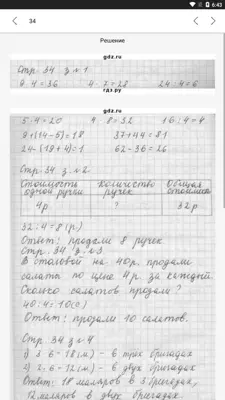 6:43
34
Решение
gdz.ru
Стр. 34 з. №1
9·4=36 4·7=28 24:4=6
gdz.ру
gdz.ru
5·4=20 4·8=32 16:4=4
9+(14-5)=18 37+44=81
24-(19+4)=1 62-36=26
Стр. 34 з. №2.
Стоимость одной ручки Количество ручек Общая стоимость
4р ? 32р
32:4=8(р.)
Ответ: продали 8 ручек.
Стр. 34 з. №3.
В столовой на 40р. продали
салаты по цене 4р. за каждый.
Сколько салатов продали?
40:4=10(с.)
Ответ: продали 10 салатов.
Стр. 34 з. №4
1) 3·6=18(м) - в трёх бригадах
2) 2·6=12(м) - в двух бригадах.
Ответ: 18 маляров в 3 бригадах,
12 маляров в двух бригадах.